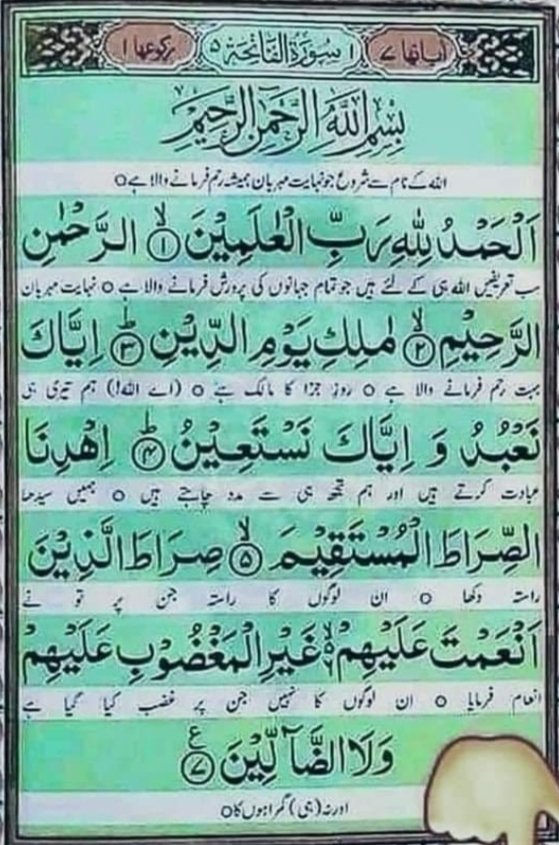 اٰیاتها ۷ ۱ سُوْرَةُ الْفَاتِحَةِ ۵ رکوعها ۱
بِسْمِ اللّٰهِ الرَّحْمٰنِ الرَّحِیْمِ
اللہ کے نام سے شروع جو نہایت مہربان ہمیشہ رحم فرمانے والا ہے ○
اَلْحَمْدُ لِلّٰهِ رَبِّ الْعٰلَمِیْنَ ۙ﴿۱﴾ الرَّحْمٰنِ
سب تعریفیں اللہ ہی کے لئے ہیں جو تمام جہانوں کی پرورش فرمانے والا ہے ○ نہایت مہربان
الرَّحِیْمِ ۙ﴿۲﴾ مٰلِكِ یَوْمِ الدِّیْنِ ؕ﴿۳﴾ اِیَّاكَ
بہت رحم فرمانے والا ہے ○ روزِ جزا کا مالک ہے ○ (اے اللہ!) ہم تیری ہی
نَعْبُدُ وَ اِیَّاكَ نَسْتَعِیْنُ ؕ﴿۴﴾ اِهْدِنَا
عبادت کرتے ہیں اور ہم تجھ ہی سے مدد چاہتے ہیں ○ ہمیں سیدھا
الصِّرَاطَ الْمُسْتَقِیْمَ ۙ﴿۵﴾ صِرَاطَ الَّذِیْنَ
راستہ دکھا ○ ان لوگوں کا راستہ جن پر تو نے
اَنْعَمْتَ عَلَیْهِمْ ۙ۬﴿۶﴾ غَیْرِ الْمَغْضُوْبِ عَلَیْهِمْ
انعام فرمایا ○ ان لوگوں کا نہیں جن پر غضب کیا گیا ہے
وَلَا الضَّآلِّیْنَ ﴿۷﴾ ع
اور نہ (ہی) گمراہوں کا ○